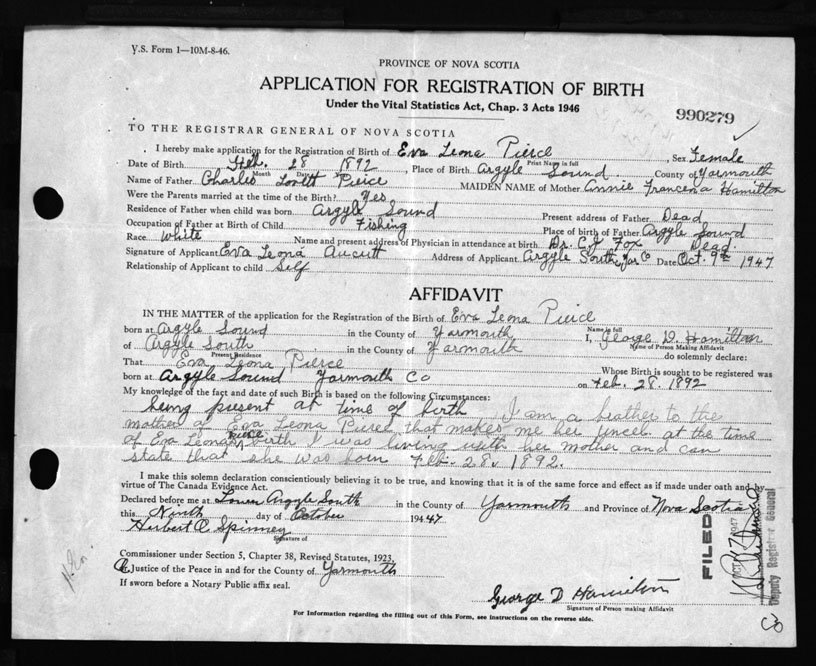 V.S. Form 1—10M-8-46.
PROVINCE OF NOVA SCOTIA
APPLICATION FOR REGISTRATION OF BIRTH
Under the Vital Statistics Act, Chap. 3 Acts 1946
990279
TO THE REGISTRAR GENERAL OF NOVA SCOTIA
I hereby make application for the Registration of Birth of Eva Leona Pierce, Sex Female
Print Name in full
Date of Birth Feb. 28 1892, Place of Birth Argyle Sound County of Yarmouth
Month
Name of Father Charles Lovitt Pierce MAIDEN NAME of Mother Annie Francena Hamilton
Were the Parents married at the time of the Birth? Yes
Residence of Father when child was born Argyle Sound Present address of Father Dead
Occupation of Father at Birth of Child Fishing Place of birth of Father Argyle Sound
Race White Name and present address of Physician in attendance at birth Dr. Fox Dead.
Signature of Applicant Eva Leona Aucutt Address of Applicant Argyle South, Yar Co Date Oct. 9th 1947
Relationship of Applicant to child Self
AFFIDAVIT
IN THE MATTER of the application for the Registration of the Birth of Eva Leona Pierce
Name in full
born at Argyle Sound in the County of Yarmouth I, George D. Hamilton
Name of Person Making Affidavit
of Argyle South in the County of Yarmouth do solemnly declare:
Present Residence
That Eva Leona Pierce Whose Birth is sought to be registered was
born at Argyle Sound Yarmouth Co on Feb. 28. 1892
My knowledge of the fact and date of such Birth is based on the following Circumstances:
being present at time of birth I am a brother to the
mother of Eva Leona Pierce that makes me her uncle at the time
of Eva Leona Pierce birth I was living with her mother and can
state that she was born Feb. 28. 1892.
I make this solemn declaration conscientiously believing it to be true, and knowing that it is of the same force and effect as if made under oath and by
virtue of The Canada Evidence Act.
Declared before me at Lower Argyle South in the County of Yarmouth and Province of Nova Scotia
this Ninth day of October 1947
Herbert C Spinney
Signature of
Commissioner under Section 5, Chapter 38, Revised Statutes, 1923,
Justice of the Peace in and for the County of Yarmouth
If sworn before a Notary Public affix seal.
George D Hamilton
Signature of Person making Affidavit
For Information regarding the filling out of this Form, see instructions on the reverse side.
FILED
OCT 17 1947
Deputy Registrar General